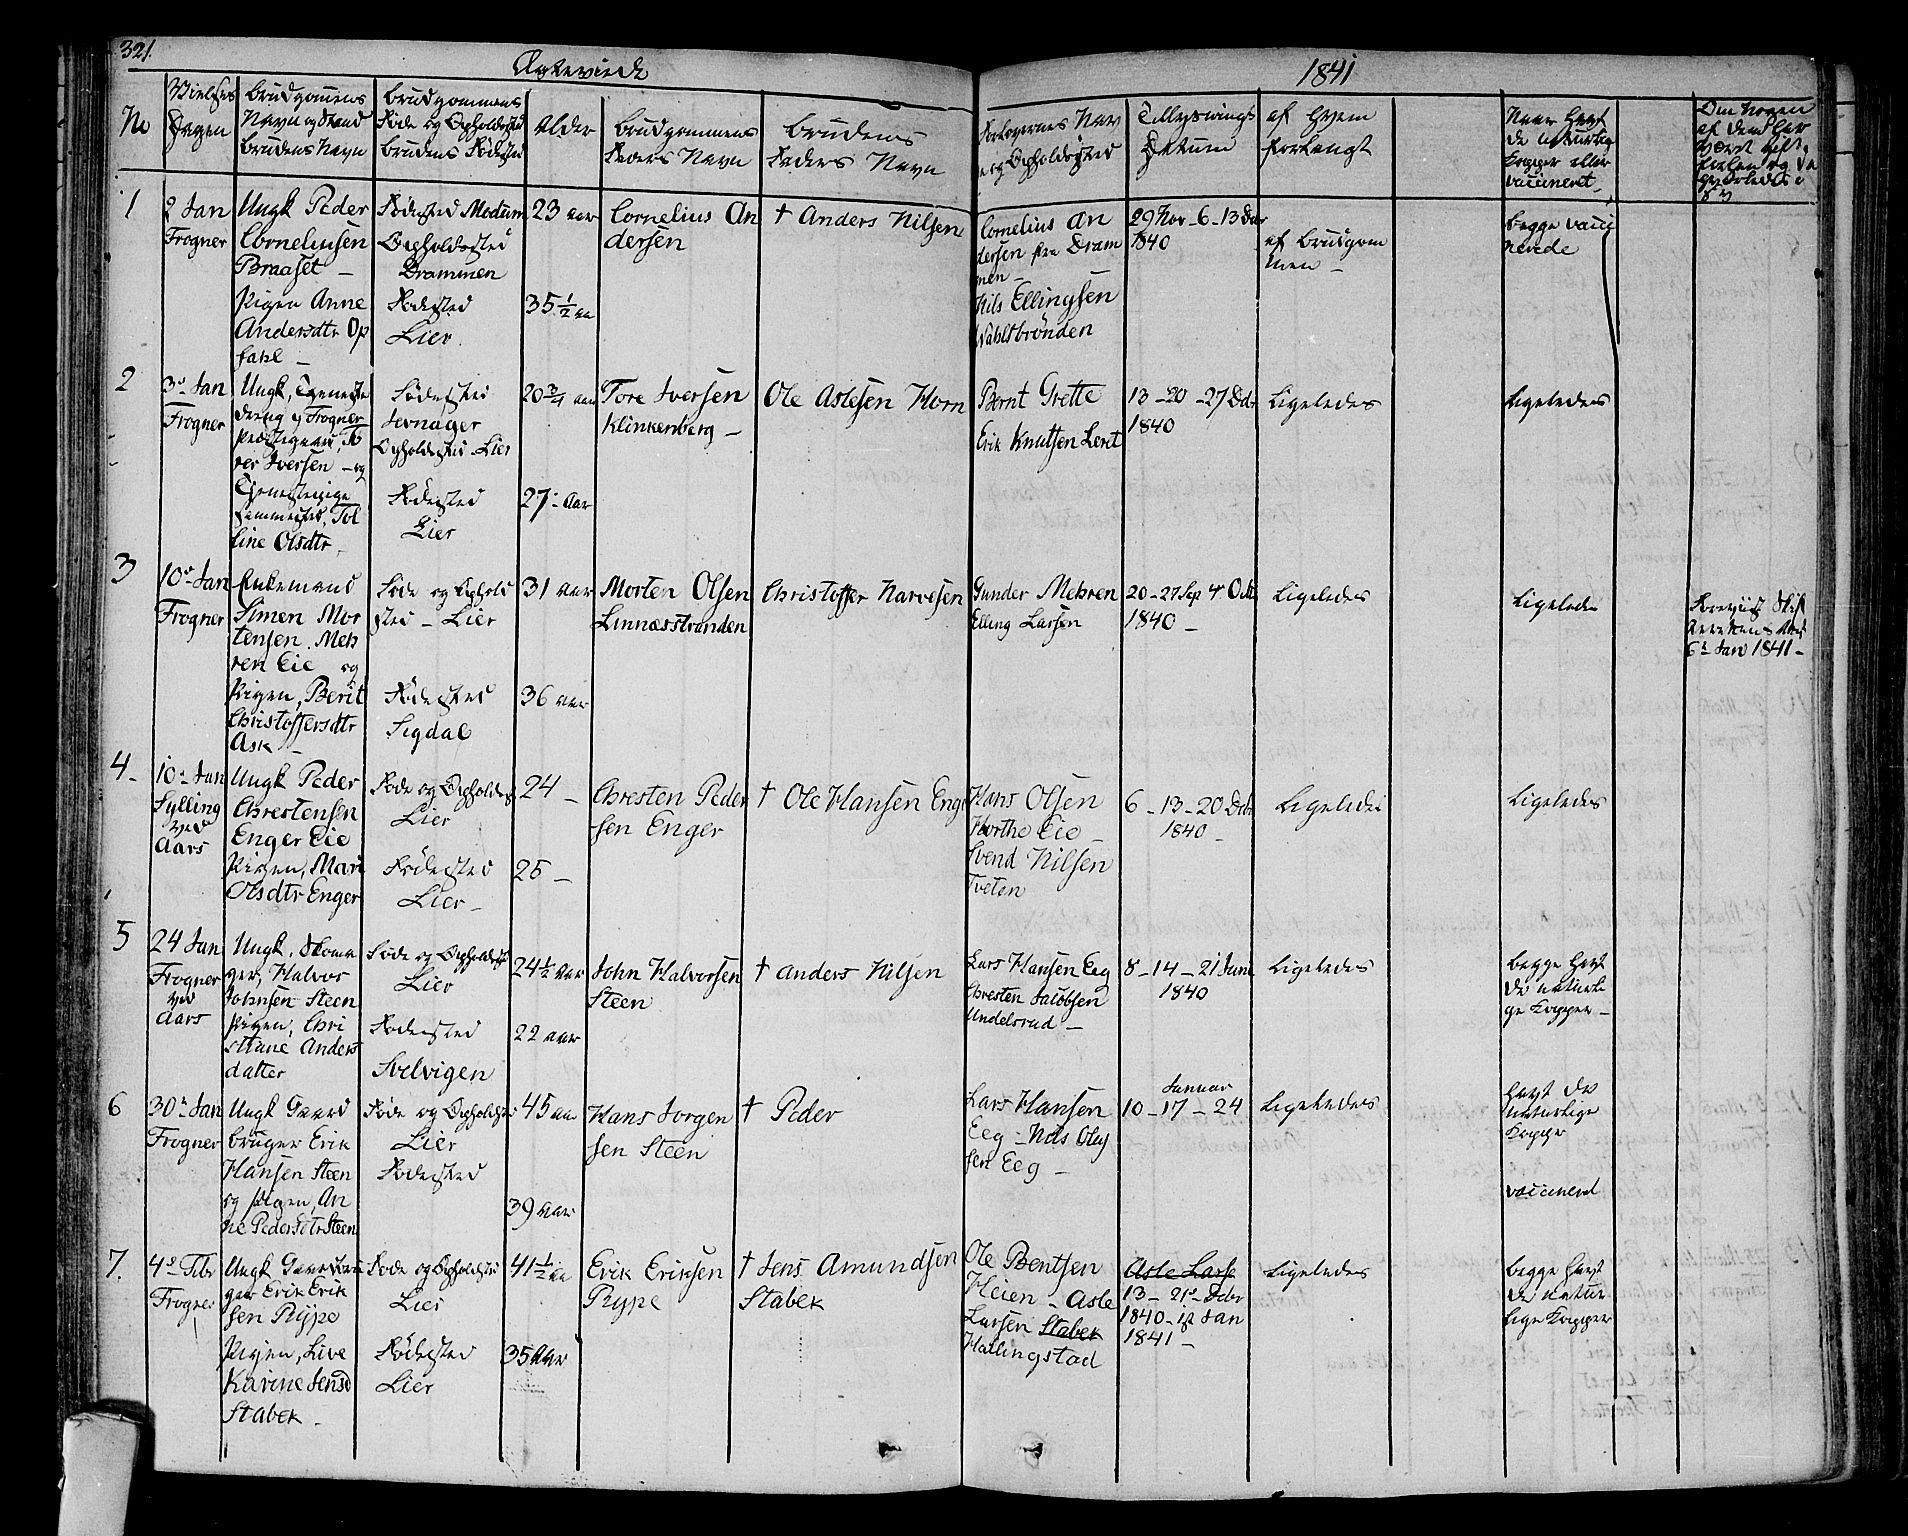 321.
Ægteviede
1841
No
Vielses
Dagen
Brudgomens
Navn og Stand
Brudens Navn
Brudgommens
Føde og Opholdsted
Brudens Fødested
Alder
Brudgommens
Faders Navn
Brudens
Faders Navn
Forlovernes Nav
og Opholdsted
Tillysnings
Datum
af Hvem
forlangt
Naar havt
de naturlig
Kopper eller
vaccineret
Om Nogen
af dem har
været gift
1
2 Jan
Frogner
Ungk Peder
Corneliusen
Braaset
Pigen Anne
Andersdtr Op
sahl
Fødested Modum
Opholdssted
Drammen
Fødested
Lier
23 aar
35 1/2 aar
Cornelius An
dersen
† Anders Nilsen
Cornelius An
dersen fra Dram
men
Nils Ellingsen
Wahlsbrønden
29 Nov - 6 - 13 Dec
1840
af Brudgom
men
begge vacci
nerede
2
3 Jan
Frogner
Ungk, Tjeneste
dreng p Frogner
rer Iversen - og
Tjenestepige
Tol
line Olsdtr
Fødested
Jevnager
Opholdssted Lier
Fødested
Lier
20 3/4 aar
27 - Aar
Tore Iversen
Klinkenberg
Ole Aslesen Horn
Bernt Grette
Erik Knutsen Leret
13 - 20 - 27 Decbr
1840
Ligeledes
Ligeledes
3
10 Jan
Frogner
Enkemand
Simen Mor
tensen Meh
ren Eie og
Pigen, Berit
Christoffersdtr
Ask
Føde og Ophold
sted - Lier
Fødested
Sigdal
31 aar
36 aar
Morten Olsen
Linnæsstranden
Christoffer Narvesen
Gunder Mehren
Elling Larsen
20 - 27 Sep 4 Oct
1840
Ligeledes
Ligeledes
Foreviist Skif
terettens Attest
6 Jan 1841
4
10 Jan
Sylling
ved
Aars
Ungk Peder
Chrestensen
Enger Eie
Pigen, Mari
Olsdtr Enger
Føde og Opholdes
Lier
Fødested
Lier
24
25
Chresten Peder
sen Enger
† Ole Hansen Enger
Hans Olsen
Horthe Eie
Svend Nilsen
Tveten
6 - 13 - 20 Decbr
1840
Ligeledes
Ligeledes
5
24 Jan
Frogner
ved
Aars
Ungk. Skoma
ger, Halvor
Johnsen Steen
Pigen, Chri
stiane Anders
datter
Føde og Opholdsted
Lier
Fødested
Svelvigen
24 1/2 aar
22 aar
John Halvorsen
Steen
† Anders Nilsen
Lars Hansen Eeg
Chresten Jacobsen
Undelsrud
8 - 14 - 21 Juni
1840
Ligeledes
begge havt
de naturli
ge Kopper
6
30 Jan
Frogner
Ungk Gaard
bruger Erik
Hansen Steen
og Pigen, An
ne Pedersdtr Steen
Føde og Opholdsted
Lier
Fødested
45 aar
39 aar
Hans Jorgen
sen Steen
† Peder
Lars Hansen
Eeg - Nils Olaj
sen Eeg
Januar
10 - 17 - 24
Ligeledes
havt de
naturlige
Kopper
vaccineret
7.
4 Febr
Frogner
Ungk Gaardbru
ger Erik Erik
sen Rype
Pigen, Live
Karine Jensd
Stabek
Føde og Opholdsted
Lier
Fødested
Lier
41 1/2 aar
35 Aar
Erik Eriksen
Rype
† Jens Amundsen
Stabek
Ole Bentsen
Heien - Asle
Larsen Stabek
Hallingstad
Asle Larse
13 - 21 - Dcbr
1840 - 1st Jan
1841
Ligeledes
begge havt
de natur
lige Kopper